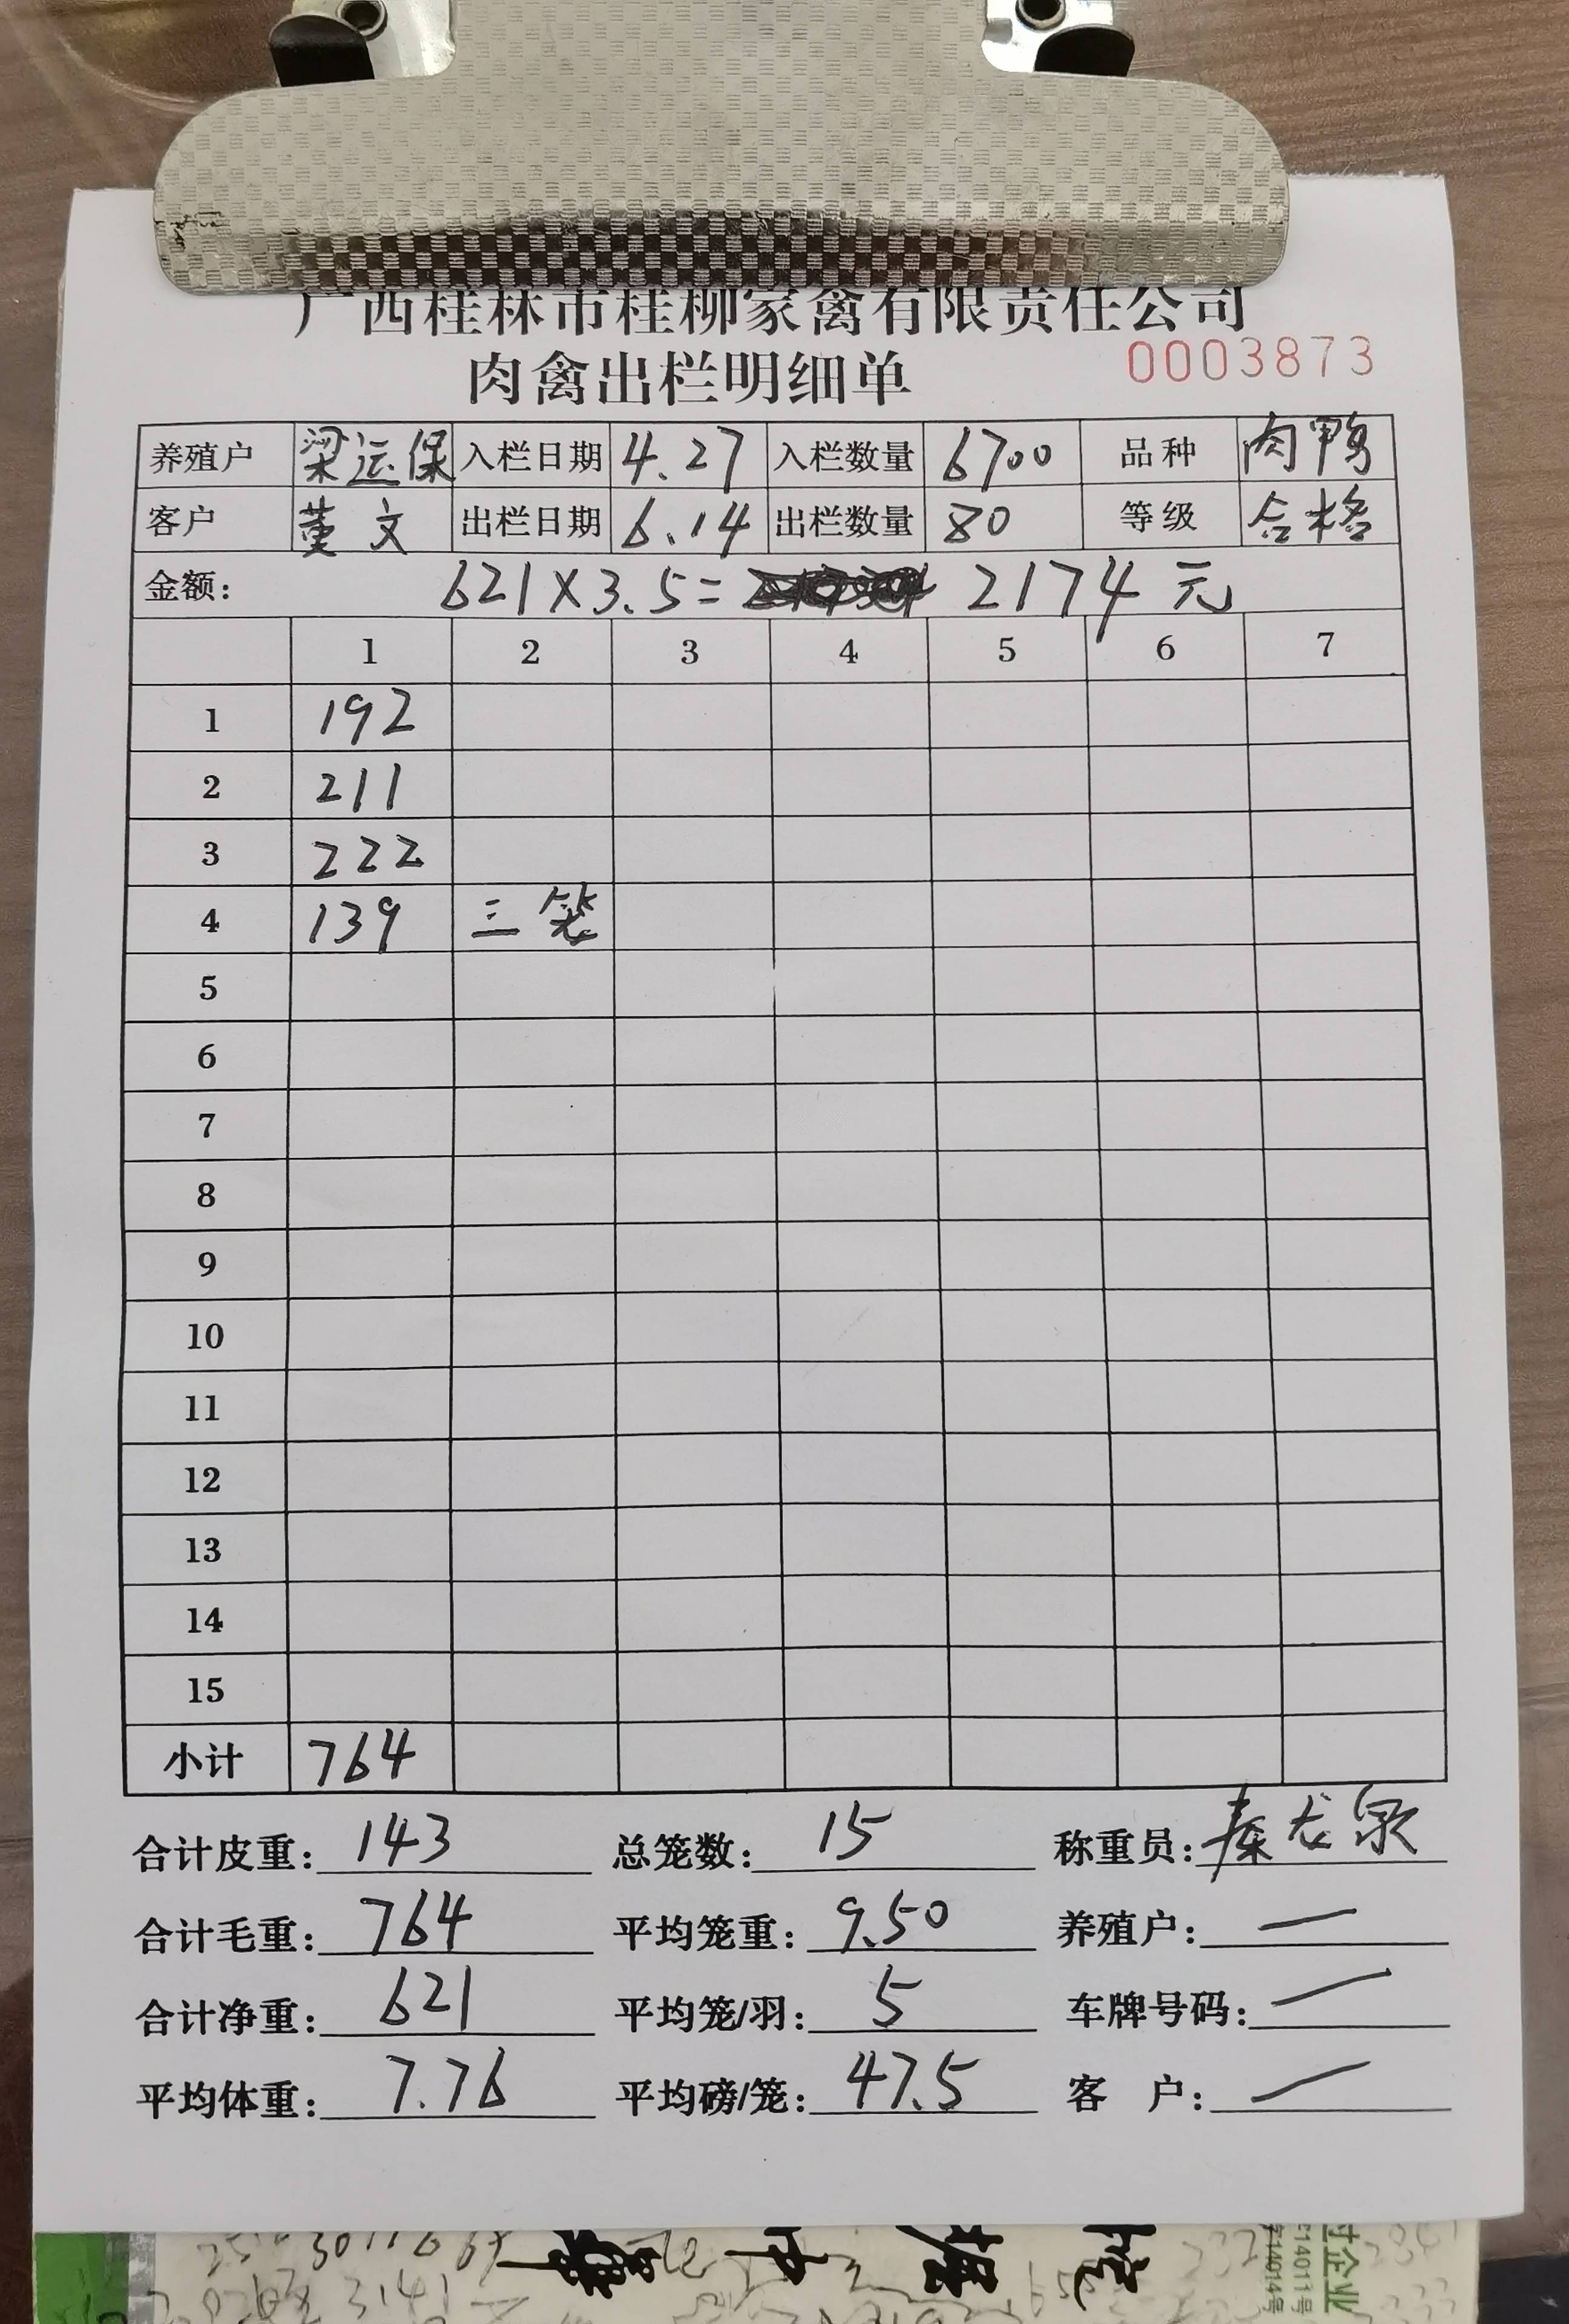 广西桂林市桂柳家禽有限责任公司
肉禽出栏明细单 0003873
养殖户 梁运保 入栏日期 4.27 入栏数量 6700 品种 肉鸭
客户 董文 出栏日期 6.14 出栏数量 80 等级 合格
金额: 621×3.5= 2174元
1 2 3 4 5 6 7
1 192
2 211
3 222
4 139 三笼
5
6
7
8
9
10
11
12
13
14
15
小计 764
合计皮重: 143 总笼数: 15 称重员: 秦龙泉
合计毛重: 764 平均笼重: 9.50 养殖户: —
合计净重: 621 平均笼/羽: 5 车牌号码: —
平均体重: 7.76 平均磅/笼: 47.5 客 户: —